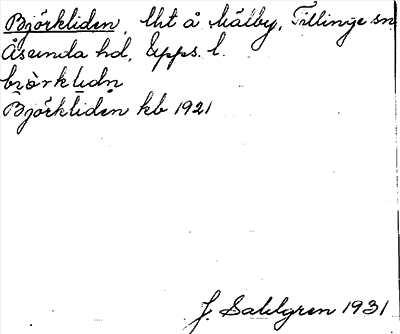 Björkliden, lht å Mälby, Tillinge sn
Åsunda hd, Upps. l.
bjòrklidn̥
Björkliden kb 1921
J. Sahlgren 1931